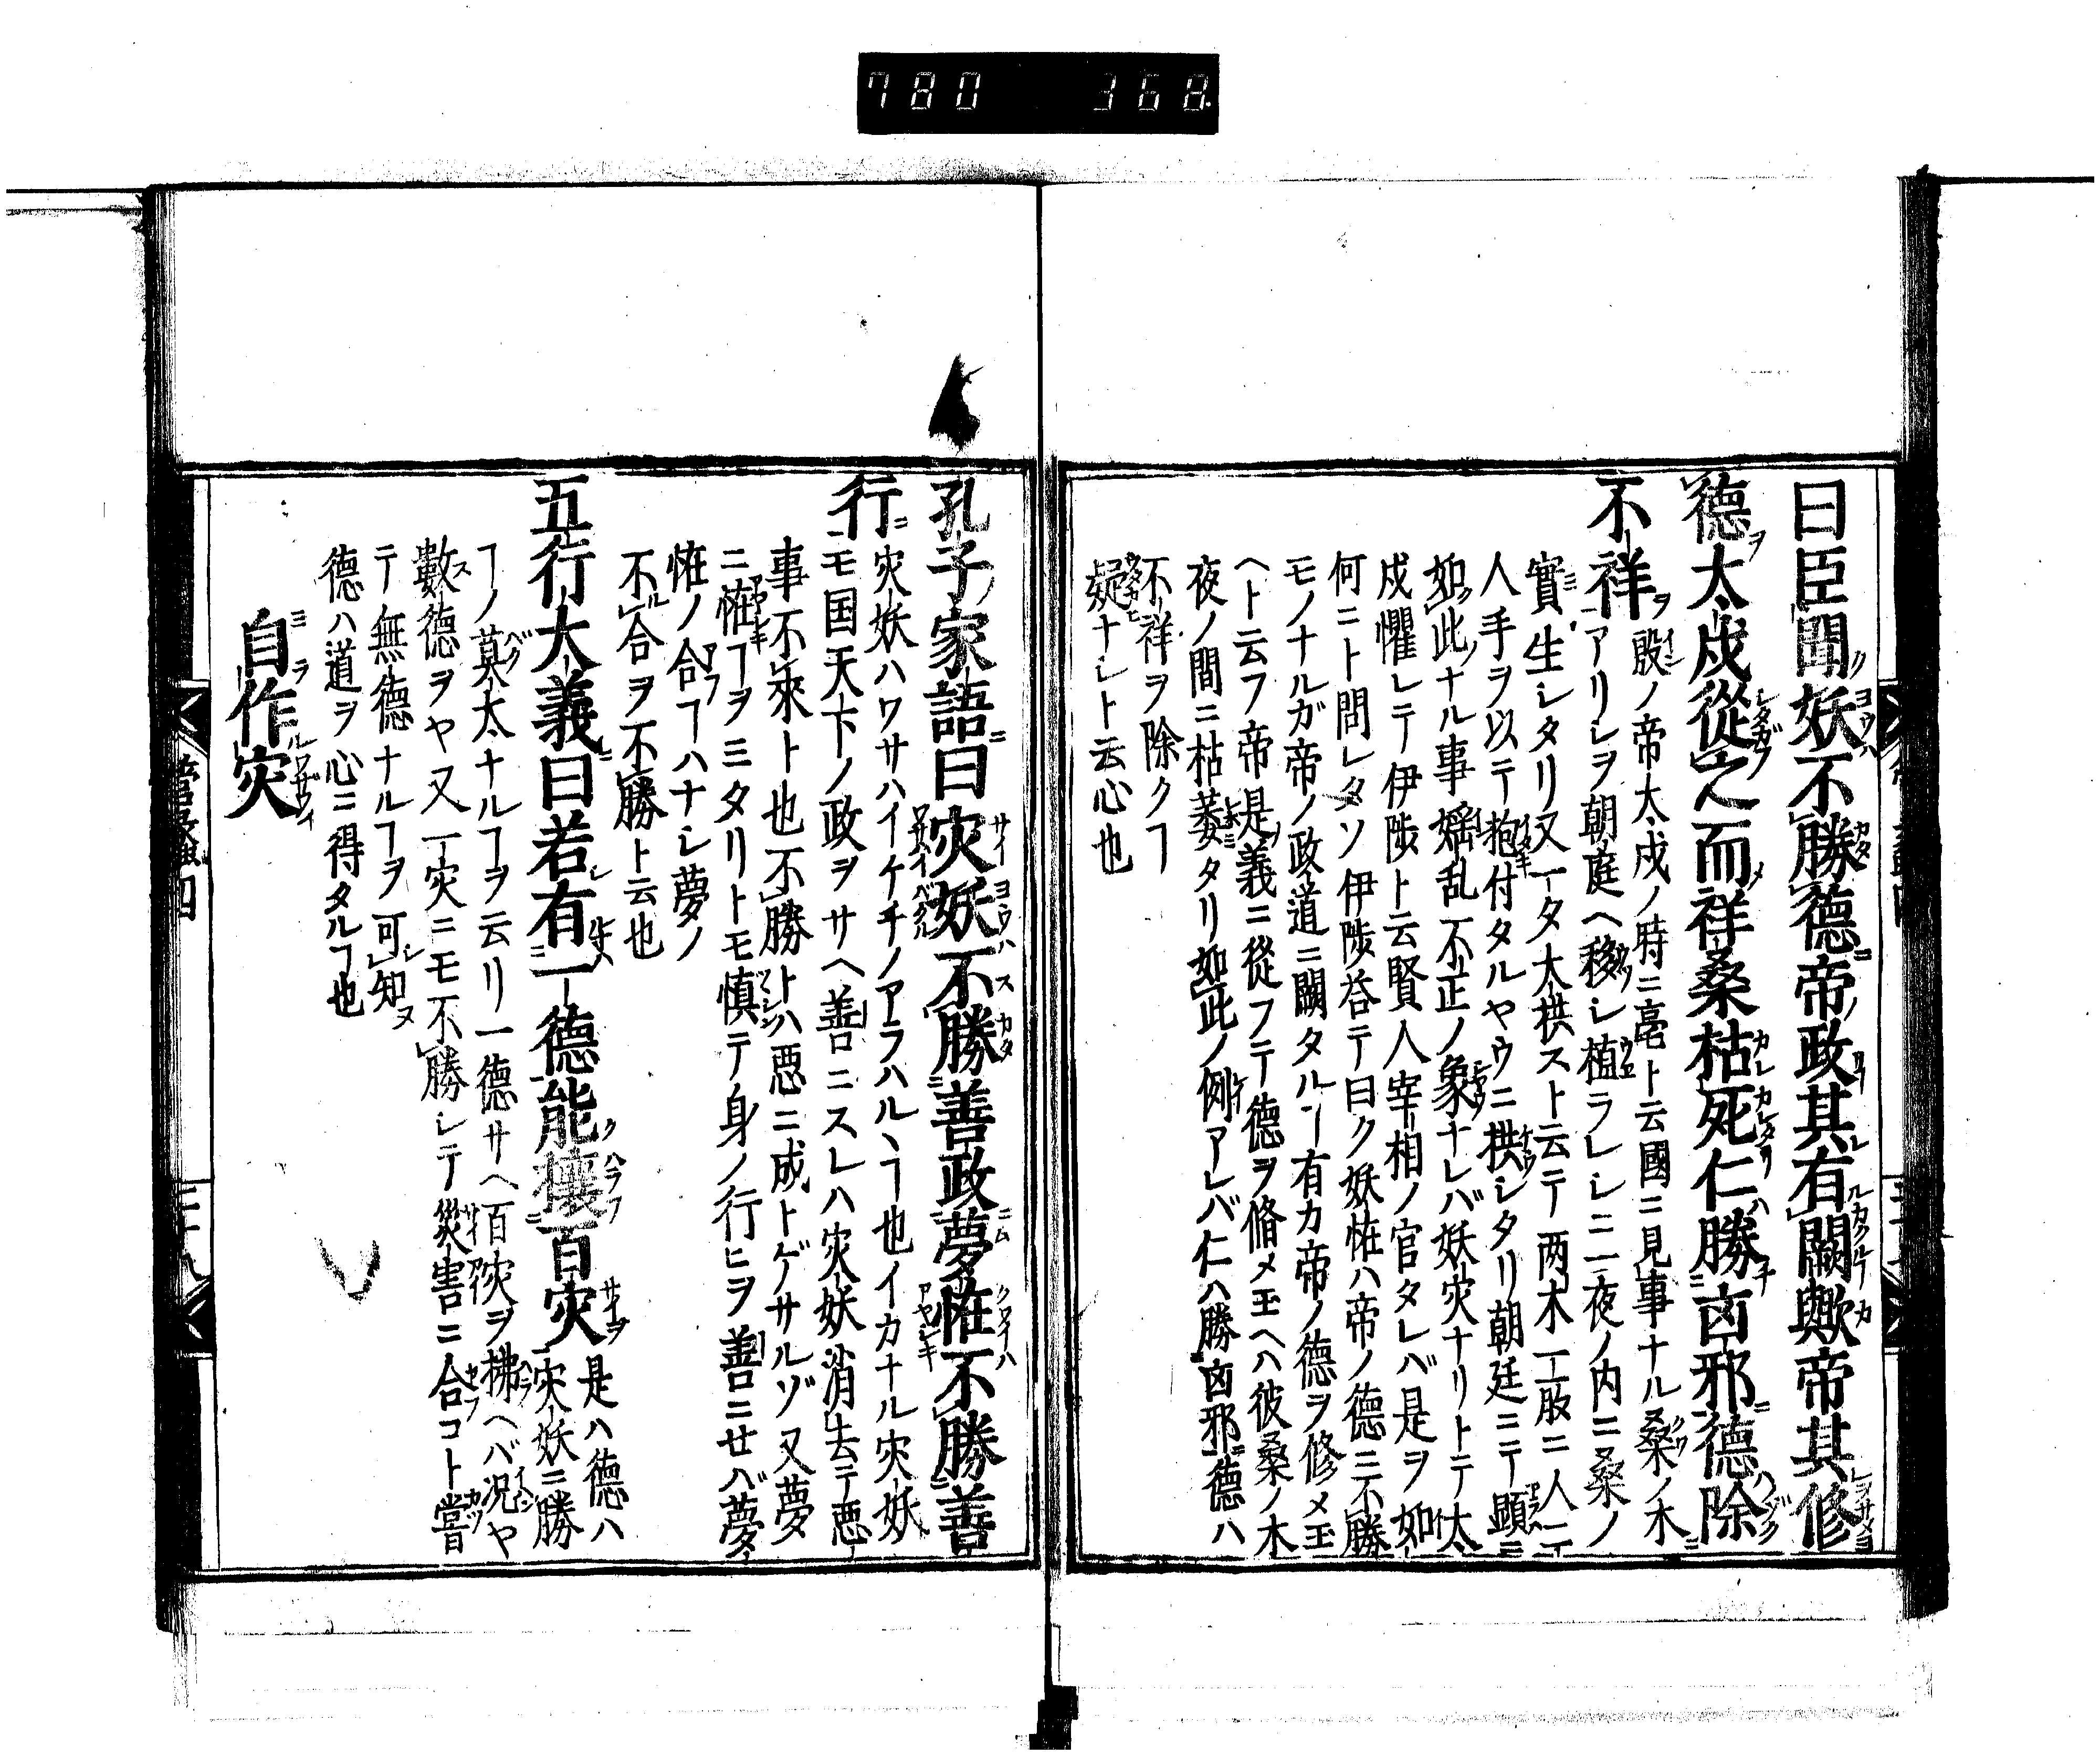 780 368
曰臣聞妖不勝德帝政其有闕歟帝其修
德太戊從之而祥桑枯死仁勝凶邪德除
不祥 殷ノ帝太戊ノ時ニ亳ト云國ニ見事ナル桑ノ木
アリシヲ朝庭ヘ移シ植ラレシニ一夜ノ内ニ桑ノ
實生シタリ又一タ太拱スト云テ两木一工股ニ人一工
人手ヲ以テ抱付タルヤウニ拱シタリ朝廷ニテ顕ニ
如此ナル事婬乱不正ノ象ナレバ妖灾ナリトテ太
戊懼レテ伊陟ト云賢人宰相ノ官タレバ是ヲ如
何ニト問レタソ伊陟荅テ曰ク妖恠ハ帝ノ德ニ不勝
モノナルガ帝ノ政道ニ闕タルヿ有カ帝ノ德ヲ修メ玉
ヘト云フ帝是義ニ從フテ德ヲ脩メ玉ヘハ彼桑ノ木
夜ノ間ニ枯萎タリ如此ノ例アレバ仁ハ勝凶邪德ハ
不祥ヲ除クヿ
疑ナシト云心也
孔子家語曰灾妖不勝善政夢恠不勝善
行 灾妖ハワサハイケチノアラハルヽヿ也イカナル灾妖
モ国天下ノ政ヲサヘ善ニスレハ灾妖消去テ悪
事不來ト也不勝トハ惡ニ成トゲサルゾ又夢
ニ恠ヿヲミタリトモ慎テ身ノ行ヒヲ善ニせバ夢
恠ノ合ヿハナシ夢ノ
不合ヲ不勝ト云也
五行大義曰若有一德能攘百灾 是ハ德ハ
灾妖ニ勝
ヿノ莫太ナルヿヲ云リ一德サヘ百灾ヲ拂ヘバ况ヤ
數德ヲヤ又一灾ニモ不勝シテ災害ニ合コト嘗
テ無德ナルヿヲ可知ヌ
德ハ道ヲ心ニ得タルヿ也
自作灾
管蠡四